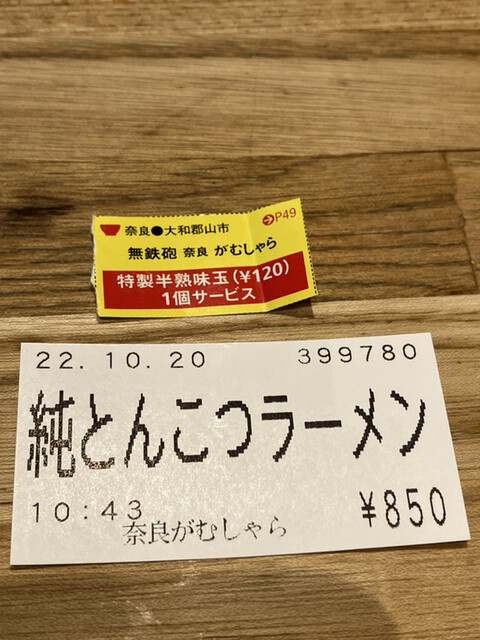 奈良●大和郡山市 P49
無鉄砲 奈良 がむしゃら
特製半熟味玉(¥120)
1個サービス
22.10.20 399780
純とんこつラーメン
10:43 ¥850
奈良がむしゃら